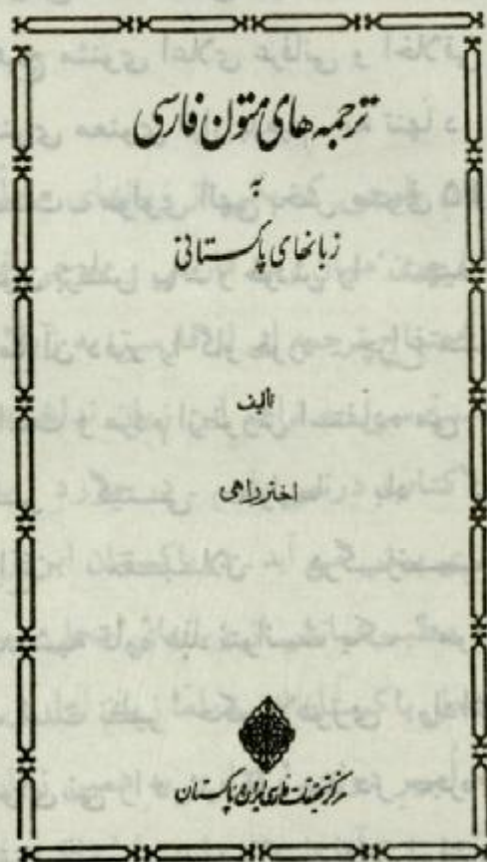 ترجمه های متون فارسی
به
زبانهای پاکستانی
تألیف
اختر راهی
مرکز تحقیقات فارسی ایران و پاکستان